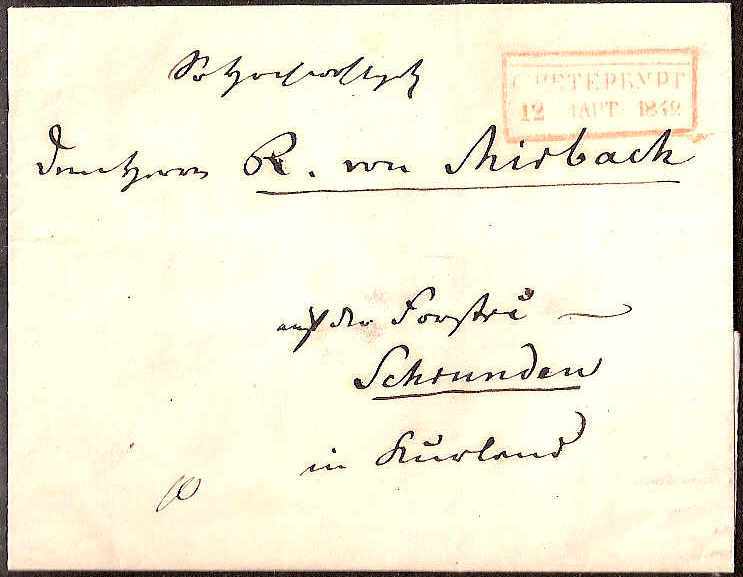 С.ПЕТЕРБУРГ
12 МАРТ. 1842
Dem Herrn R. von Mirbach
auf der Forstei
Schrunden
in Kurland